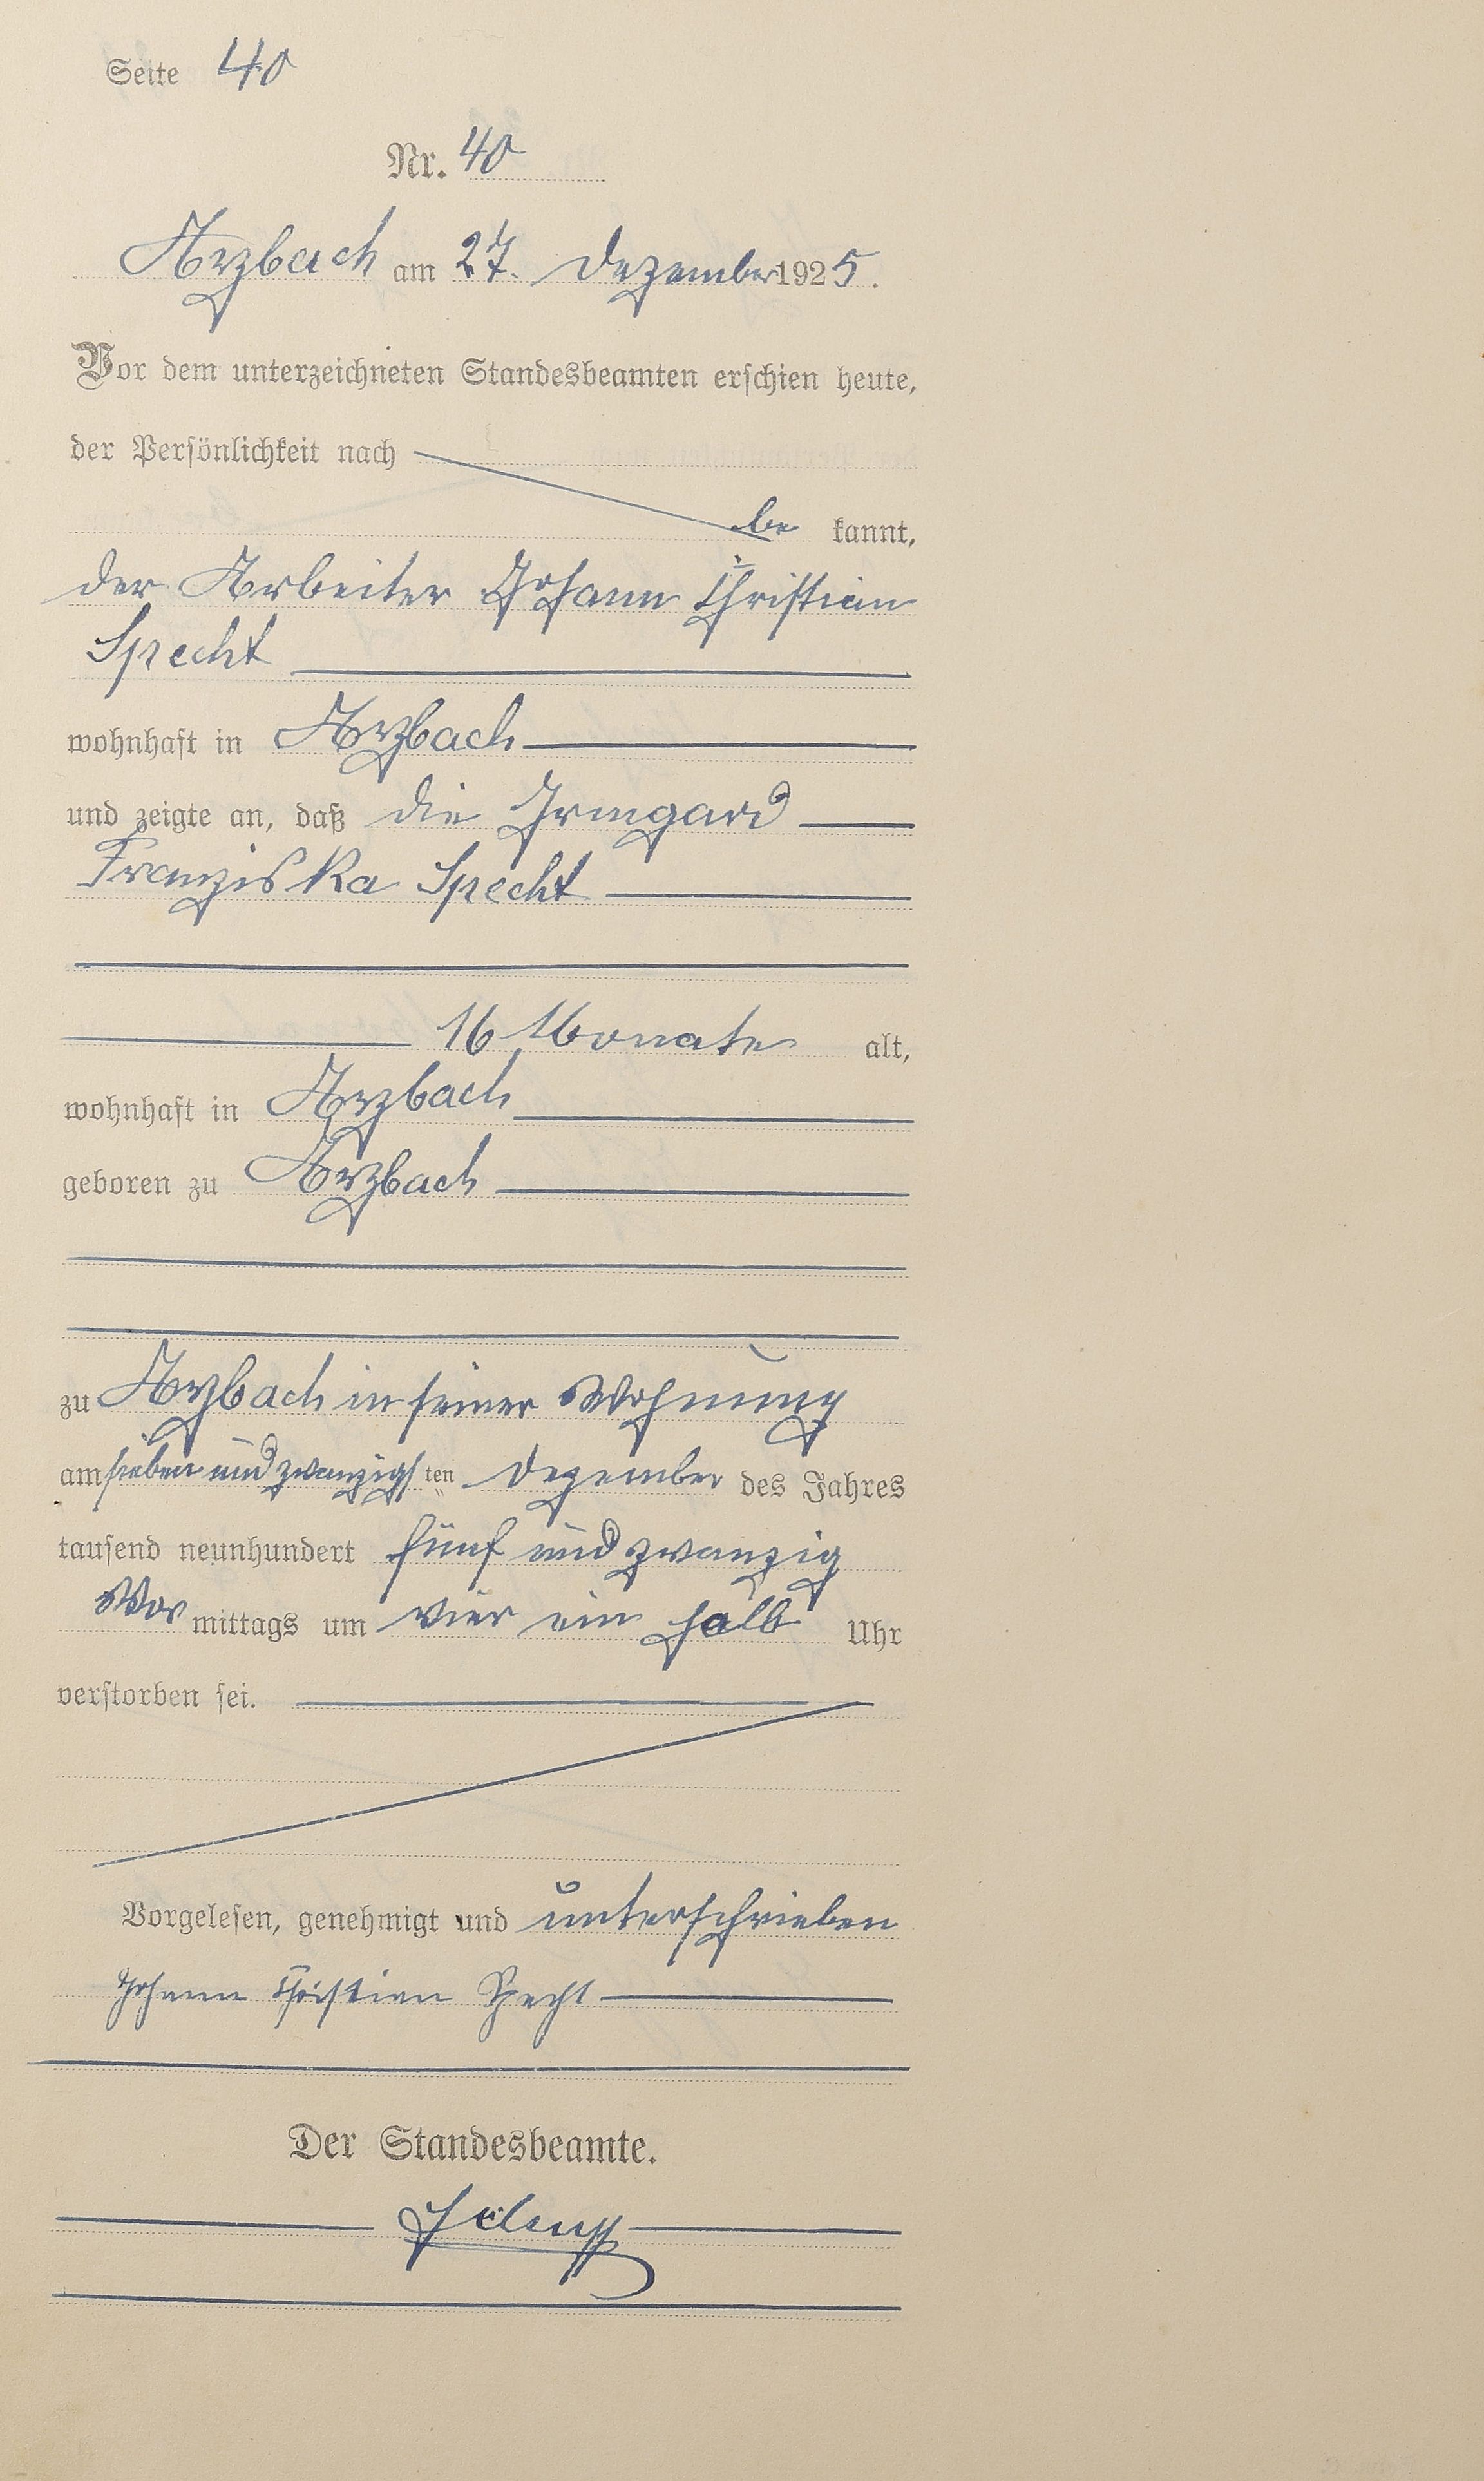 Seite 40
Nr. 40
Arzbach am 27. Dezember 1925.
Vor dem unterzeichneten Standesbeamten erschien heute,
der Persönlichkeit nach
be kannt,
der Arbeiter Johann Christian
Specht
wohnhaft in Arzbach
und zeigte an, daß die Irmgard
Franziska Specht
16 Monate alt,
wohnhaft in Arzbach
geboren zu Arzbach
zu Arzbach in seiner Wohnung
am sieben und zwanzigsten Dezember des Jahres
tausend neunhundert fünf und zwanzig
Vor mittags um vier ein halb Uhr
verstorben sei.
Vorgelesen, genehmigt und unterschrieben
Johann Christian Specht
Der Standesbeamte.